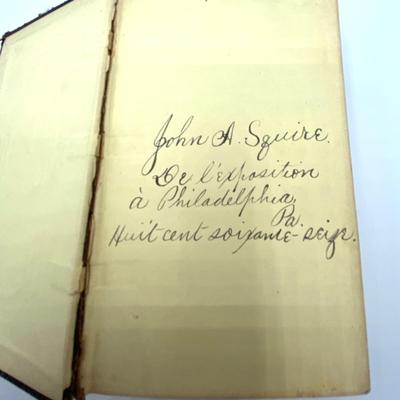 John A. Squire.
De l'exposition
à Philadelphia,
Pa.
Huit cent soixante-seize.